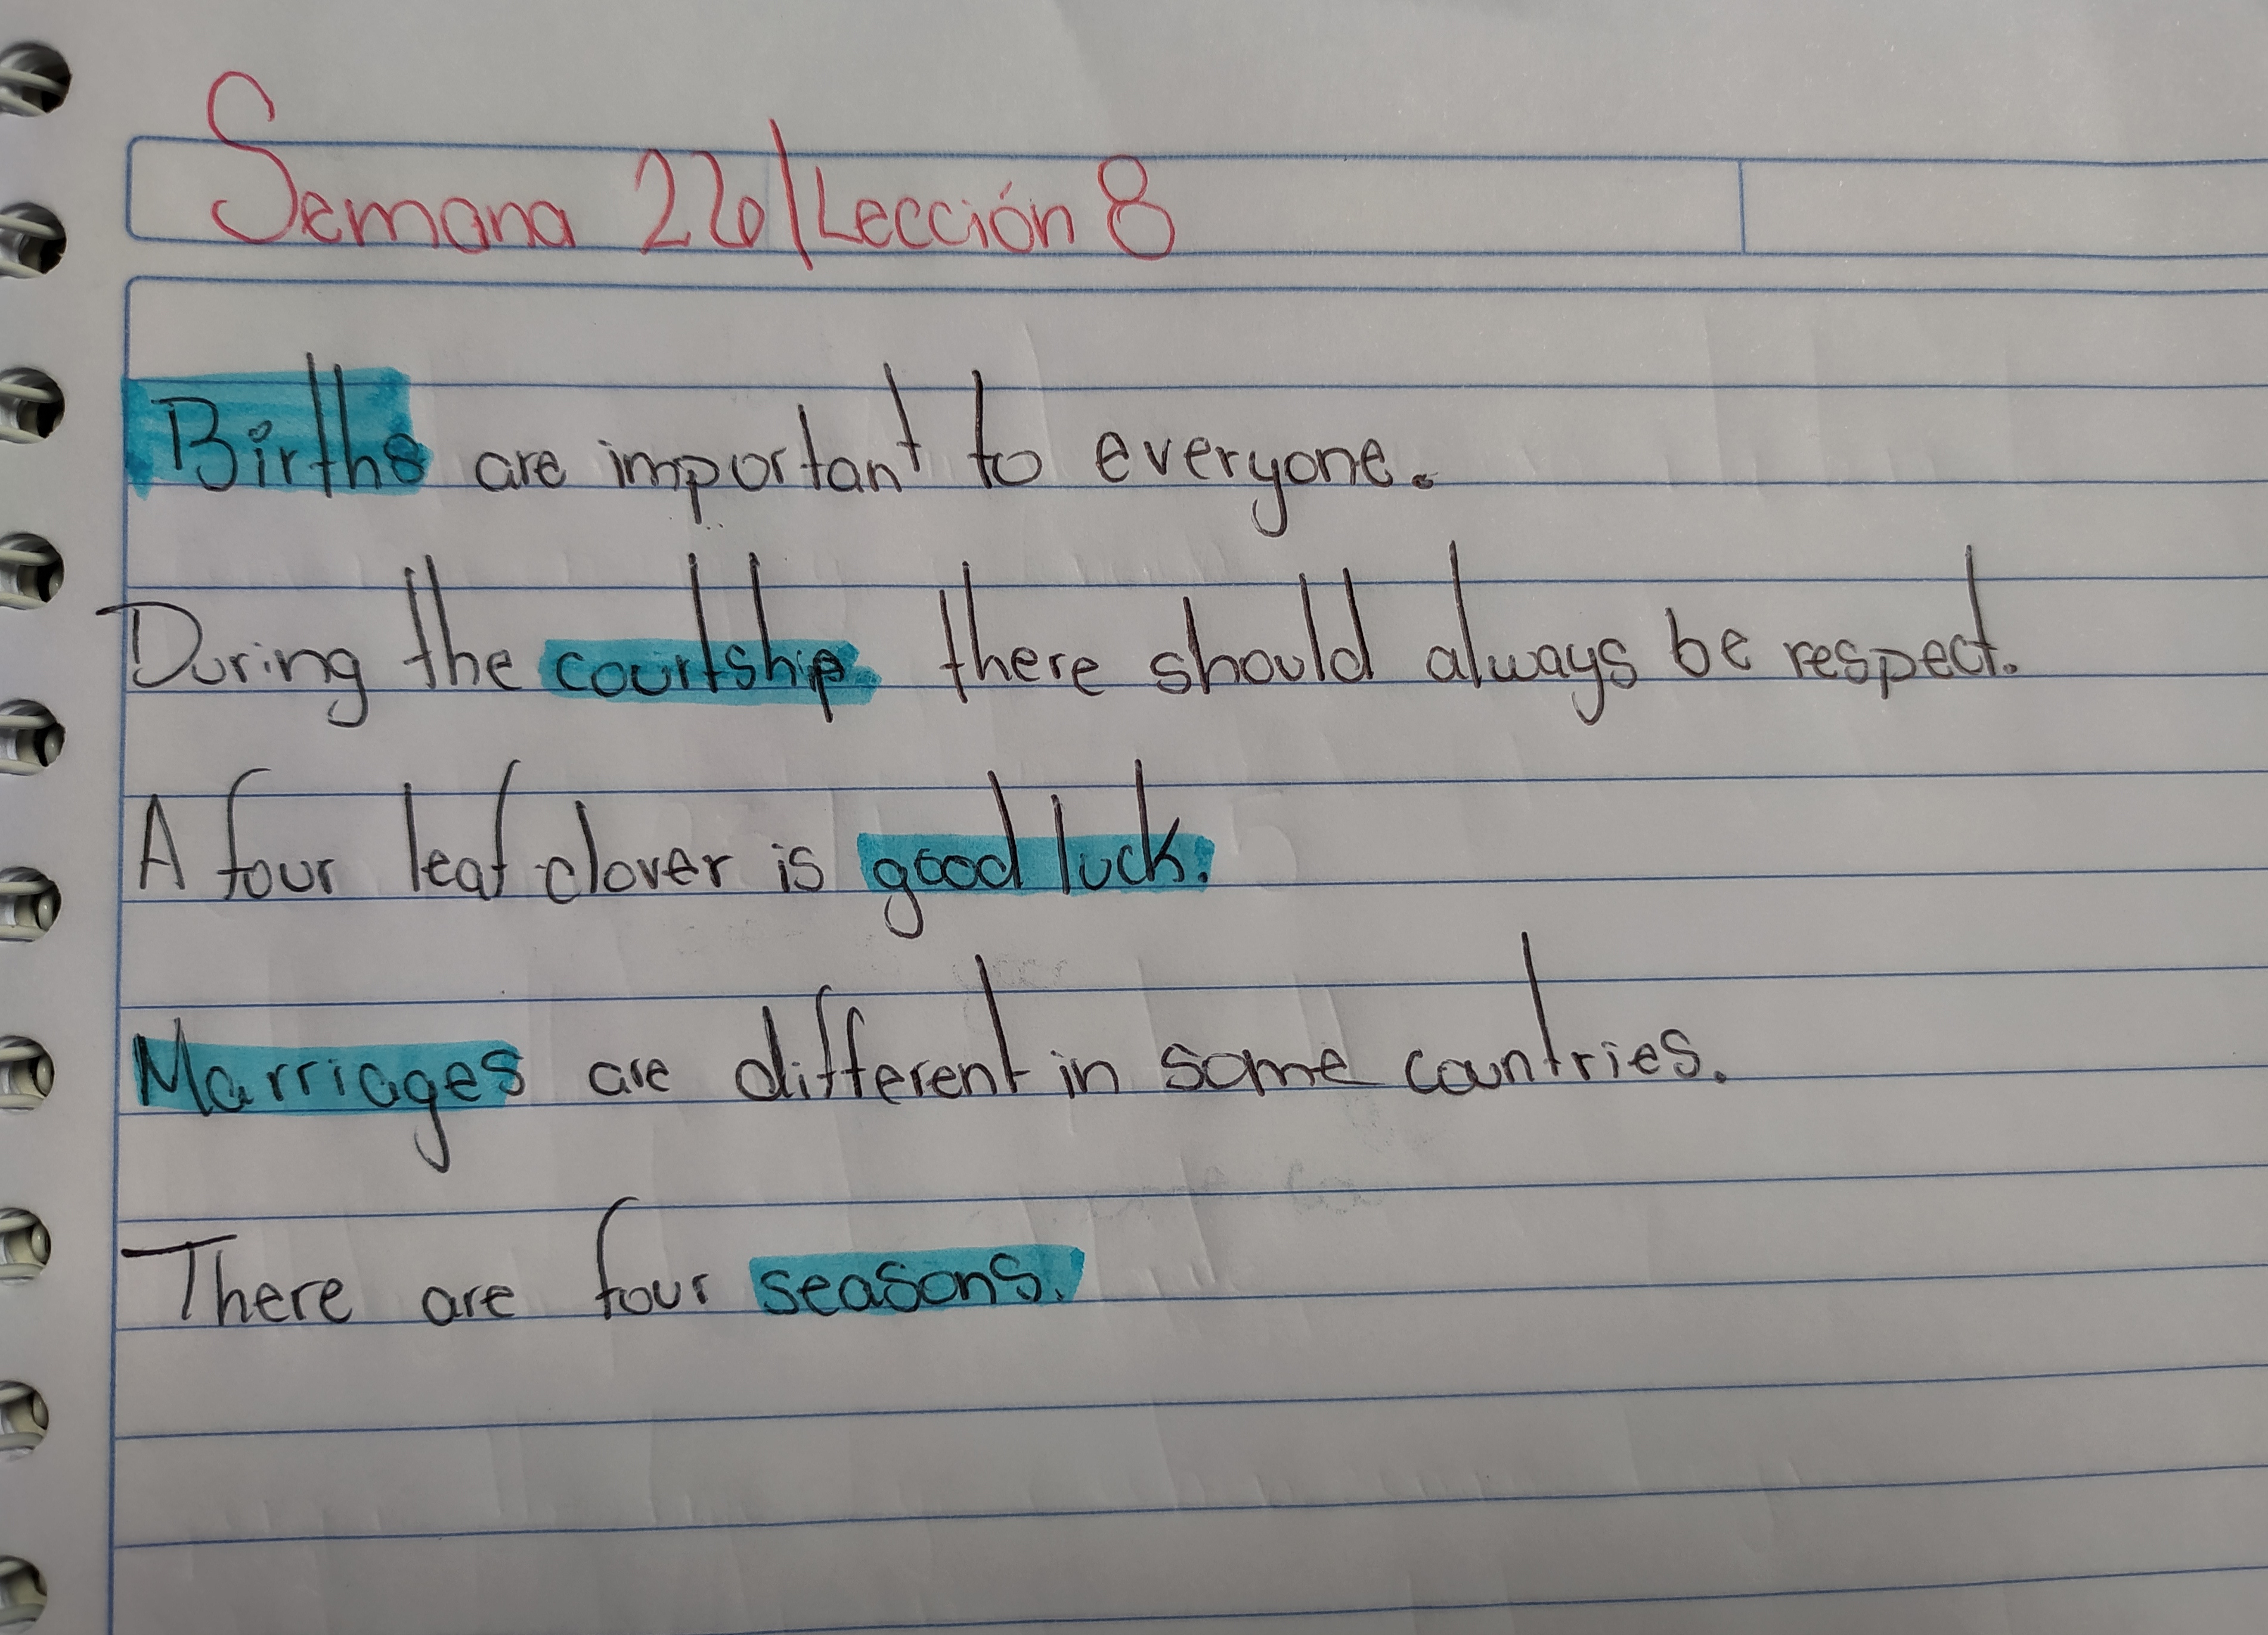 Semana 26/Lección 8
Births are important to everyone.
During the courtship there should always be respect.
A four leaf clover is good luck.
Marriages are different in some countries.
There are four seasons.